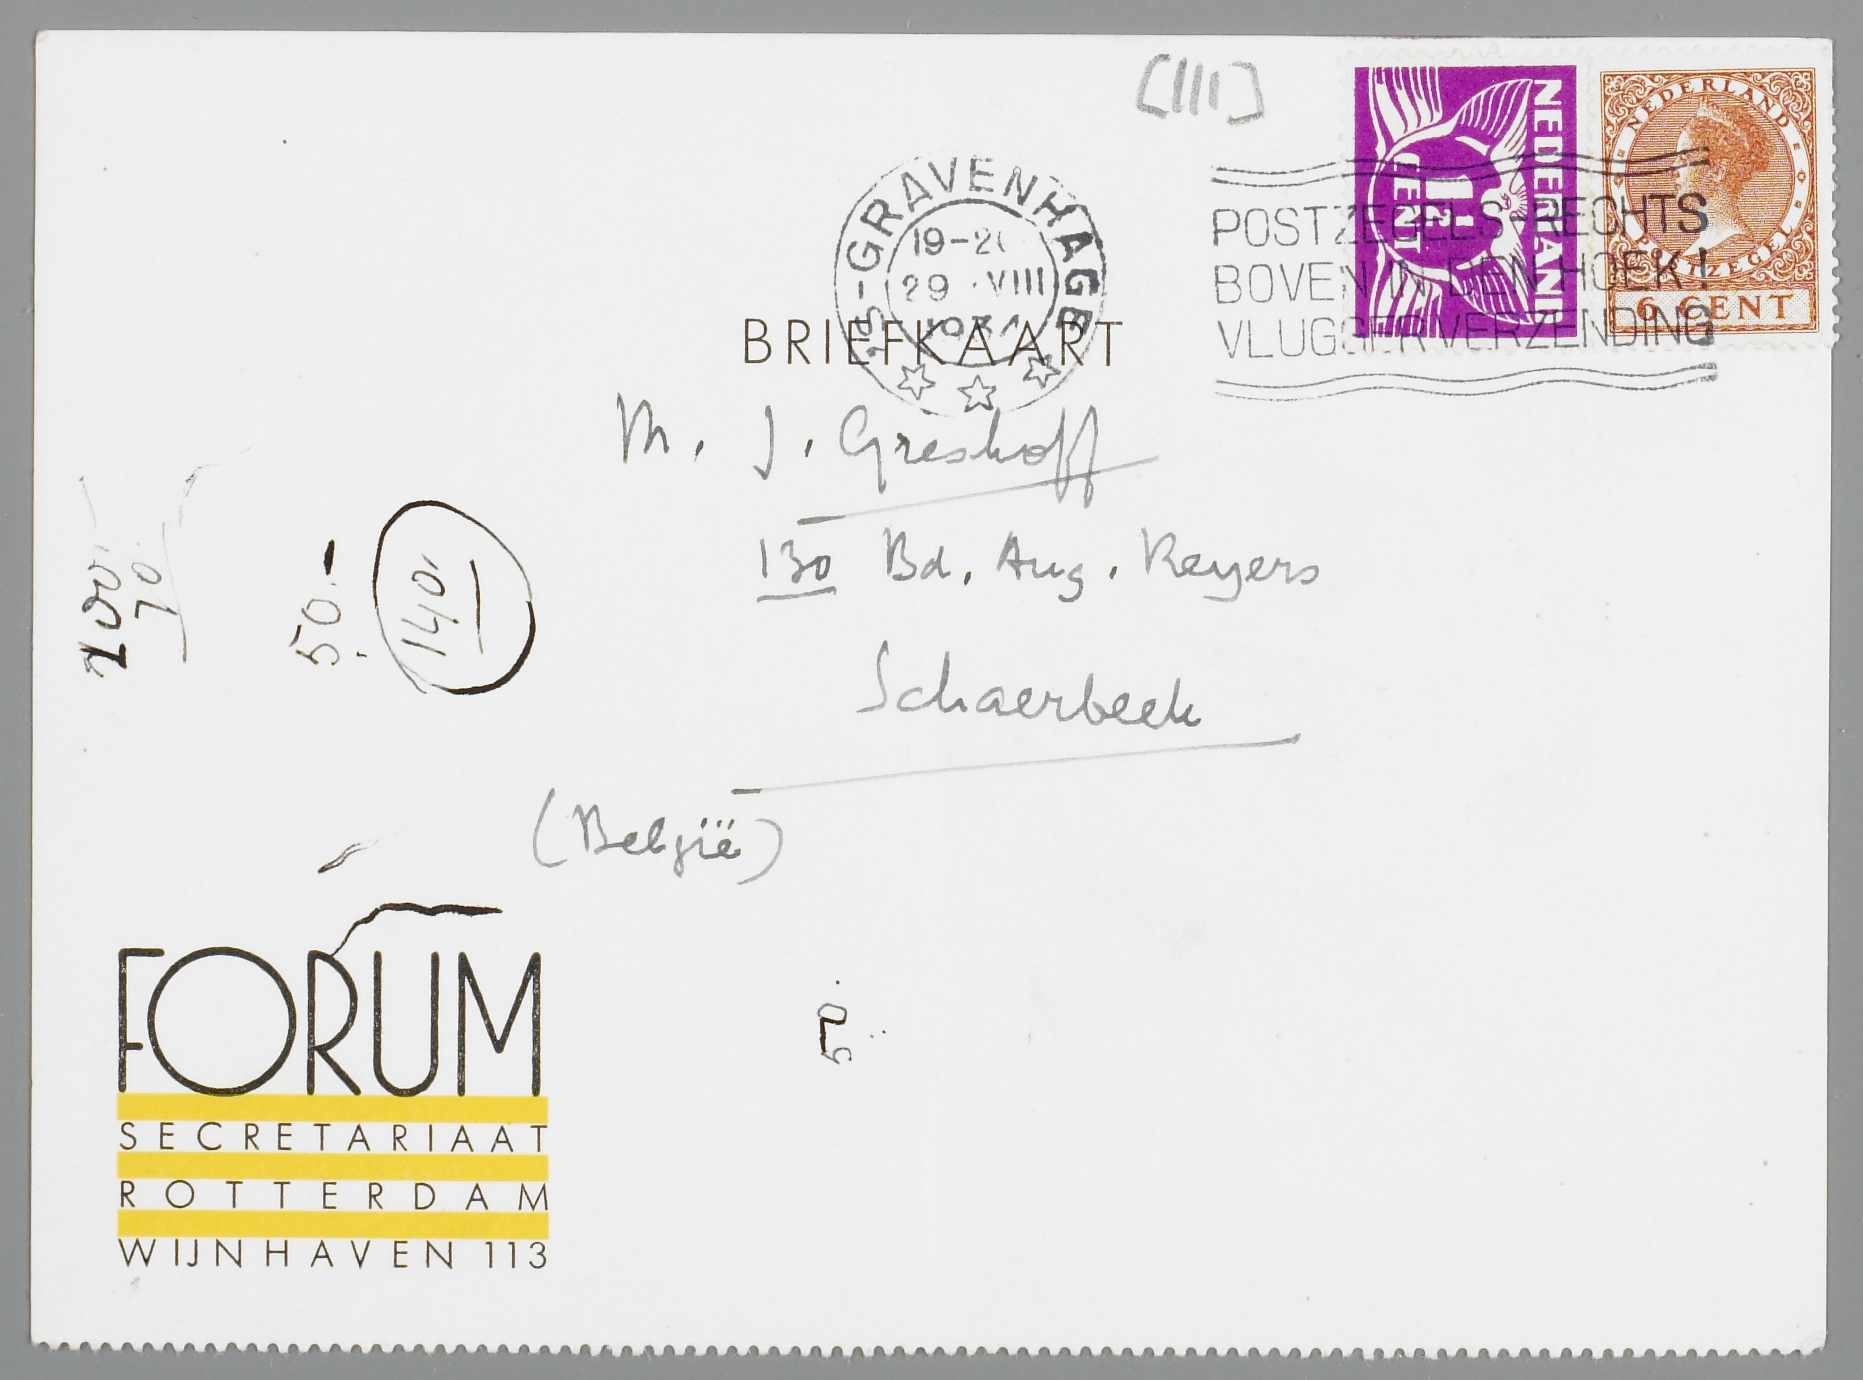 [III]
NEDERLAND
1½ CENT
NEDERLAND
POSTZEGEL
6 CENT
'S-GRAVENHAGE
19-20
29 VIII
POSTZEGELS RECHTS
BOVEN IN DEN HOEK!
VLUGGER VERZENDING
BRIEFKAART
M. J. Greshoff
130 Bd. Aug. Reyers
Schaerbeek
(België)
50.-
140.
50.
FORUM
SECRETARIAAT
ROTTERDAM
WIJNHAVEN 113